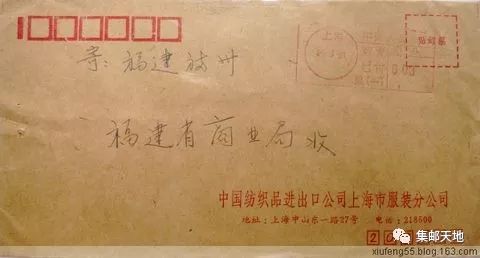 寄:福建福州
上海
贴邮票
福建省商业局收
中国纺织品进出口公司上海市服装分公司
地址:上海中山东一路27号 电话:218500
集邮天地
xiufeng55.blog.163.com